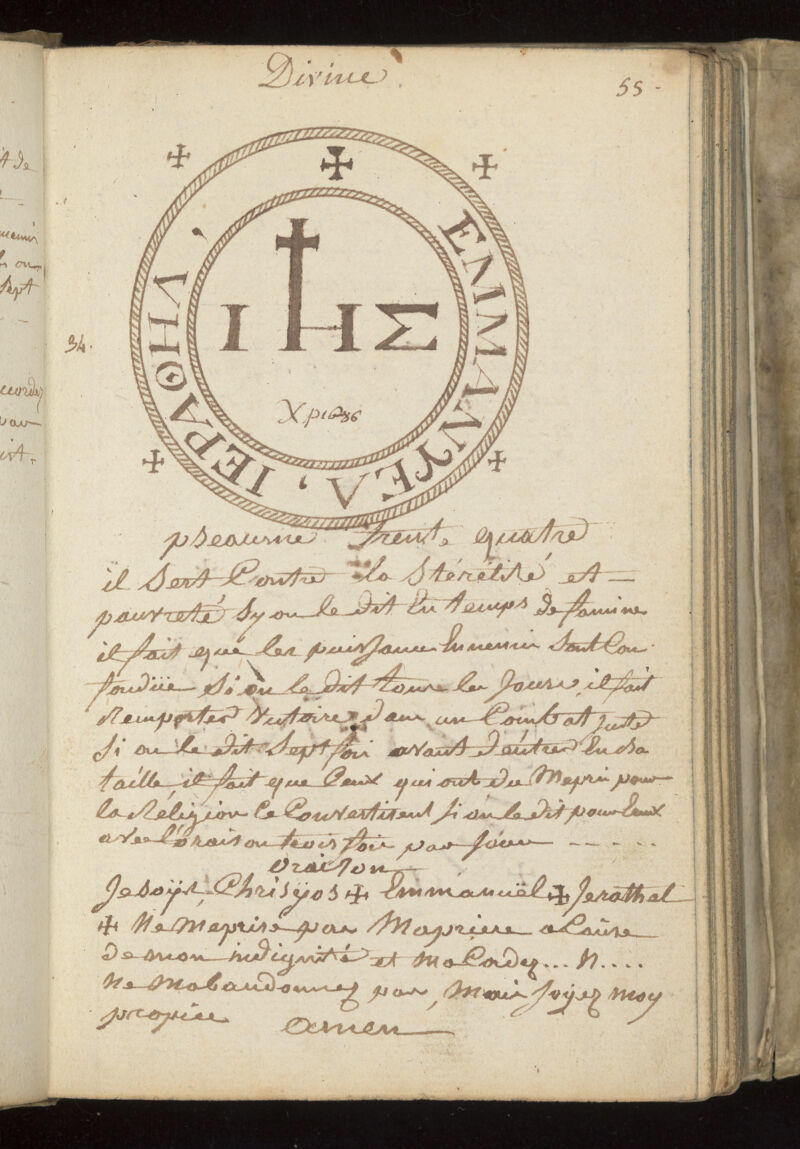 Divine
55
ΕΜΜΑΝΥΕΛ, ΙΕΡΑΘΗΛ,
34.
Ι Η Σ
pseaume trente quatre
il sert Contre la Stérélité et
pauvreté sy on le dit En temps de famine
il fait que les puissance Ennemis sont Con
fondüe Si on le dit tous les Jours, il fait
Remporter victoire dans un Combat juste
Si on le dit Sept fois avant d'entrer En ba
taille, il fait que Ceux qui ont du Mepris pour
la Religion Ce Convertisent si on le dit pour Eux
avec l'oraison trois fois par Jour - - - - -
oraison
Jesoÿs, Chrisÿos ✠ Emmanuël ✠ Jerathel
✠ Ne Meprise pas Mapriere a Cause
de mon indignité et MaCordez... N....
Ne Mabandonnez pas, Mais soyez moy
propice amen